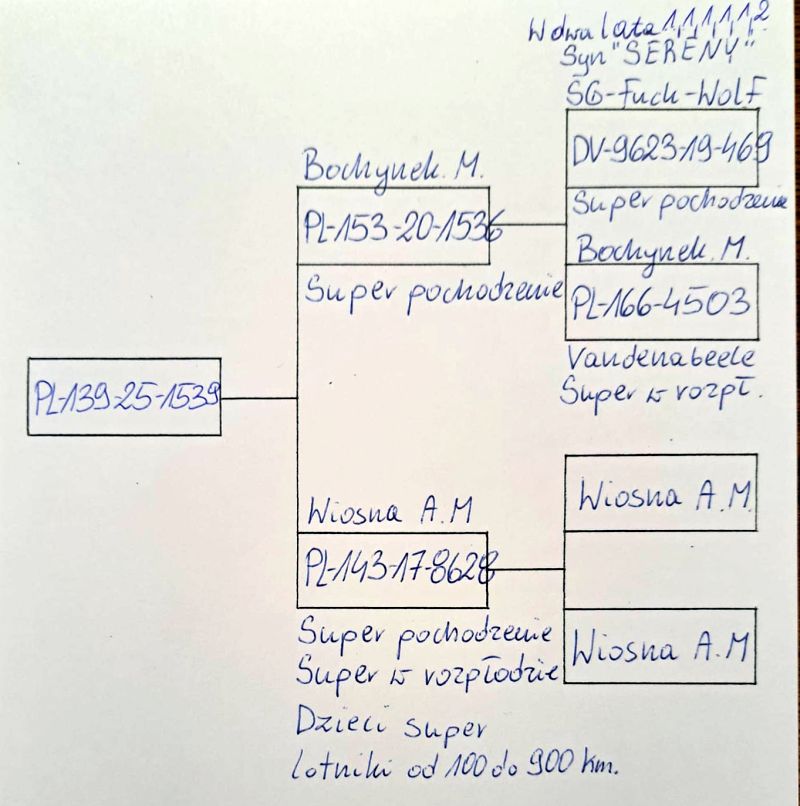 W dwa lata 1,1,1,1,1,2
Syn "SERENY"
SG-Fuck-Wolf
DV-9623-19-469
Super pochodzenie
Bochynek. M.
PL-166-4503
Vandenabeele
Super w rozpł.
Bochynek. M.
PL-153-20-1536
Super pochodzenie
PL-139-25-1539
Wiosna A.M
PL-143-17-8628
Super pochodzenie
Super w rozpłodzie
Dzieci super
lotniki od 100 do 900 km.
Wiosna A.M
Wiosna A.M